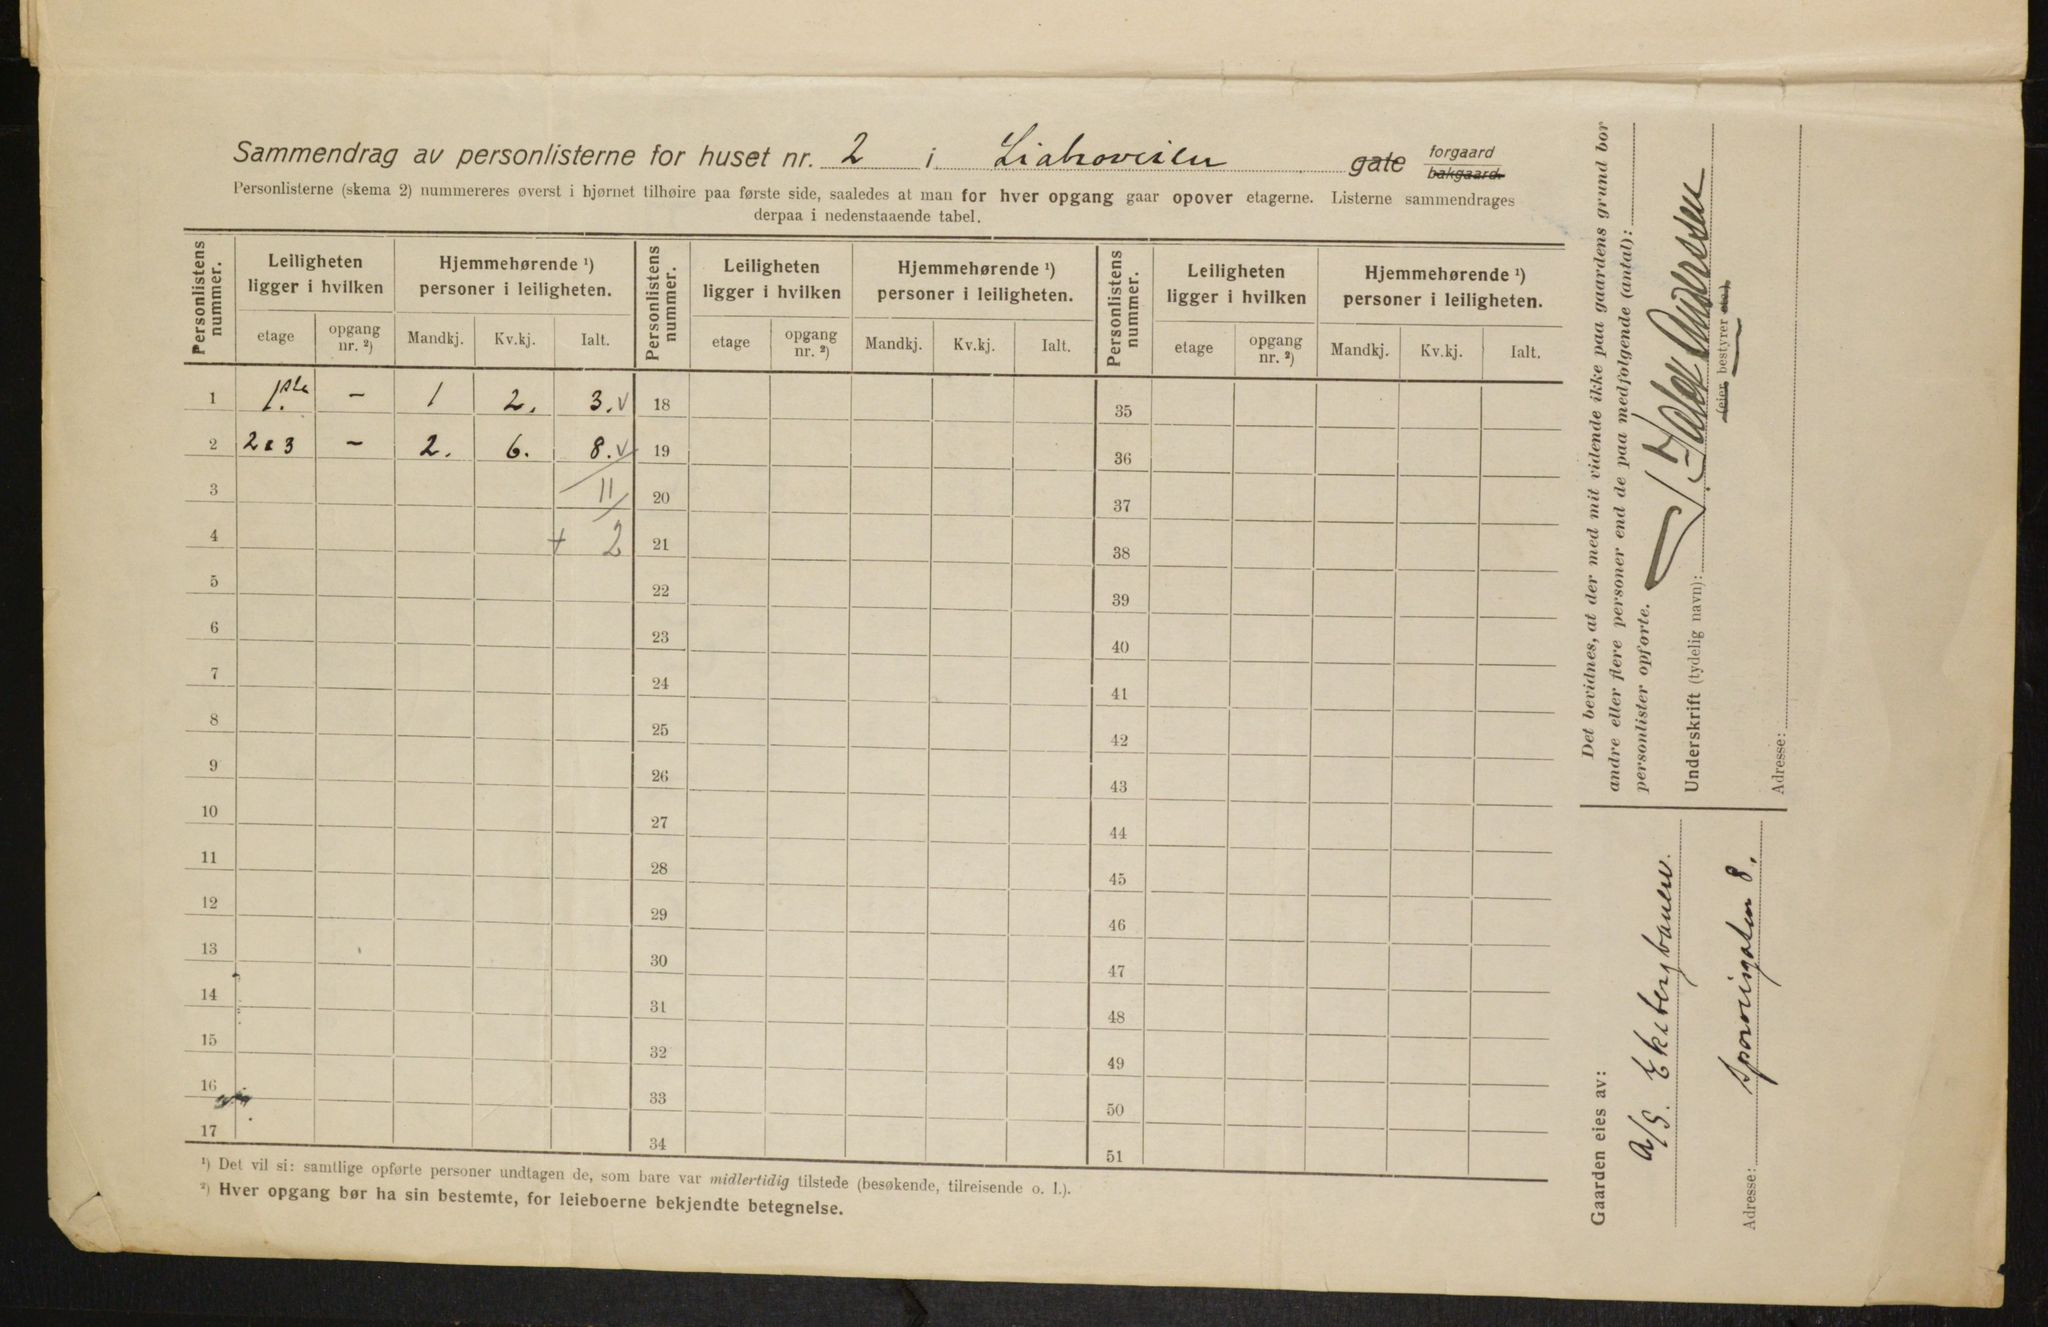 Sammendrag av personlisterne for huset nr. 2 i Liabroveien gate forgaard bakgaard.
Personlisterne (skema 2) nummereres øverst i hjørnet tilhøire paa første side, saaledes at man for hver opgang gaar opover etagerne. Listerne sammendrages
derpaa i nedenstaaende tabel.
Personlistens nummer. Leiligheten ligger i hvilken Hjemmehørende ¹) personer i leiligheten. Personlistens nummer. Leiligheten ligger i hvilken Hjemmehørende ¹) personer i leiligheten. Personlistens nummer. Leiligheten ligger i hvilken Hjemmehørende ¹) personer i leiligheten.
etage opgang nr. ²) Mandkj. Kv.kj. Ialt. etage opgang nr. ²) Mandkj. Kv.kj. Ialt. etage opgang nr. ²) Mandkj. Kv.kj. Ialt.
1 1.ste – 1 2. 3. v 18 35
2 2 & 3 – 2. 6. 8. v 19 36
3 11 20 37
4 + 2 21 38
5 22 39
6 23 40
7 24 41
8 25 42
9 26 43
10 27 44
11 28 45
12 29 46
13 30 47
14 31 48
15 32 49
16 33 50
17 34 51
¹) Det vil si: samtlige opførte personer undtagen de, som bare var midlertidig tilstede (besøkende, tilreisende o. l.).
²) Hver opgang bør ha sin bestemte, for leieboerne bekjendte betegnelse.
Det bevidnes, at der med mit vidende ikke paa gaardens grund bor
andre eller flere personer end de paa medfølgende (antal):
personlister opførte.
Underskrift (tydelig navn): Anderssen
(eier, bestyrer etc.)
Adresse:
Gaarden eies av:
A/S. Ekebergbanen.
Adresse: Sporveisgaten 8.